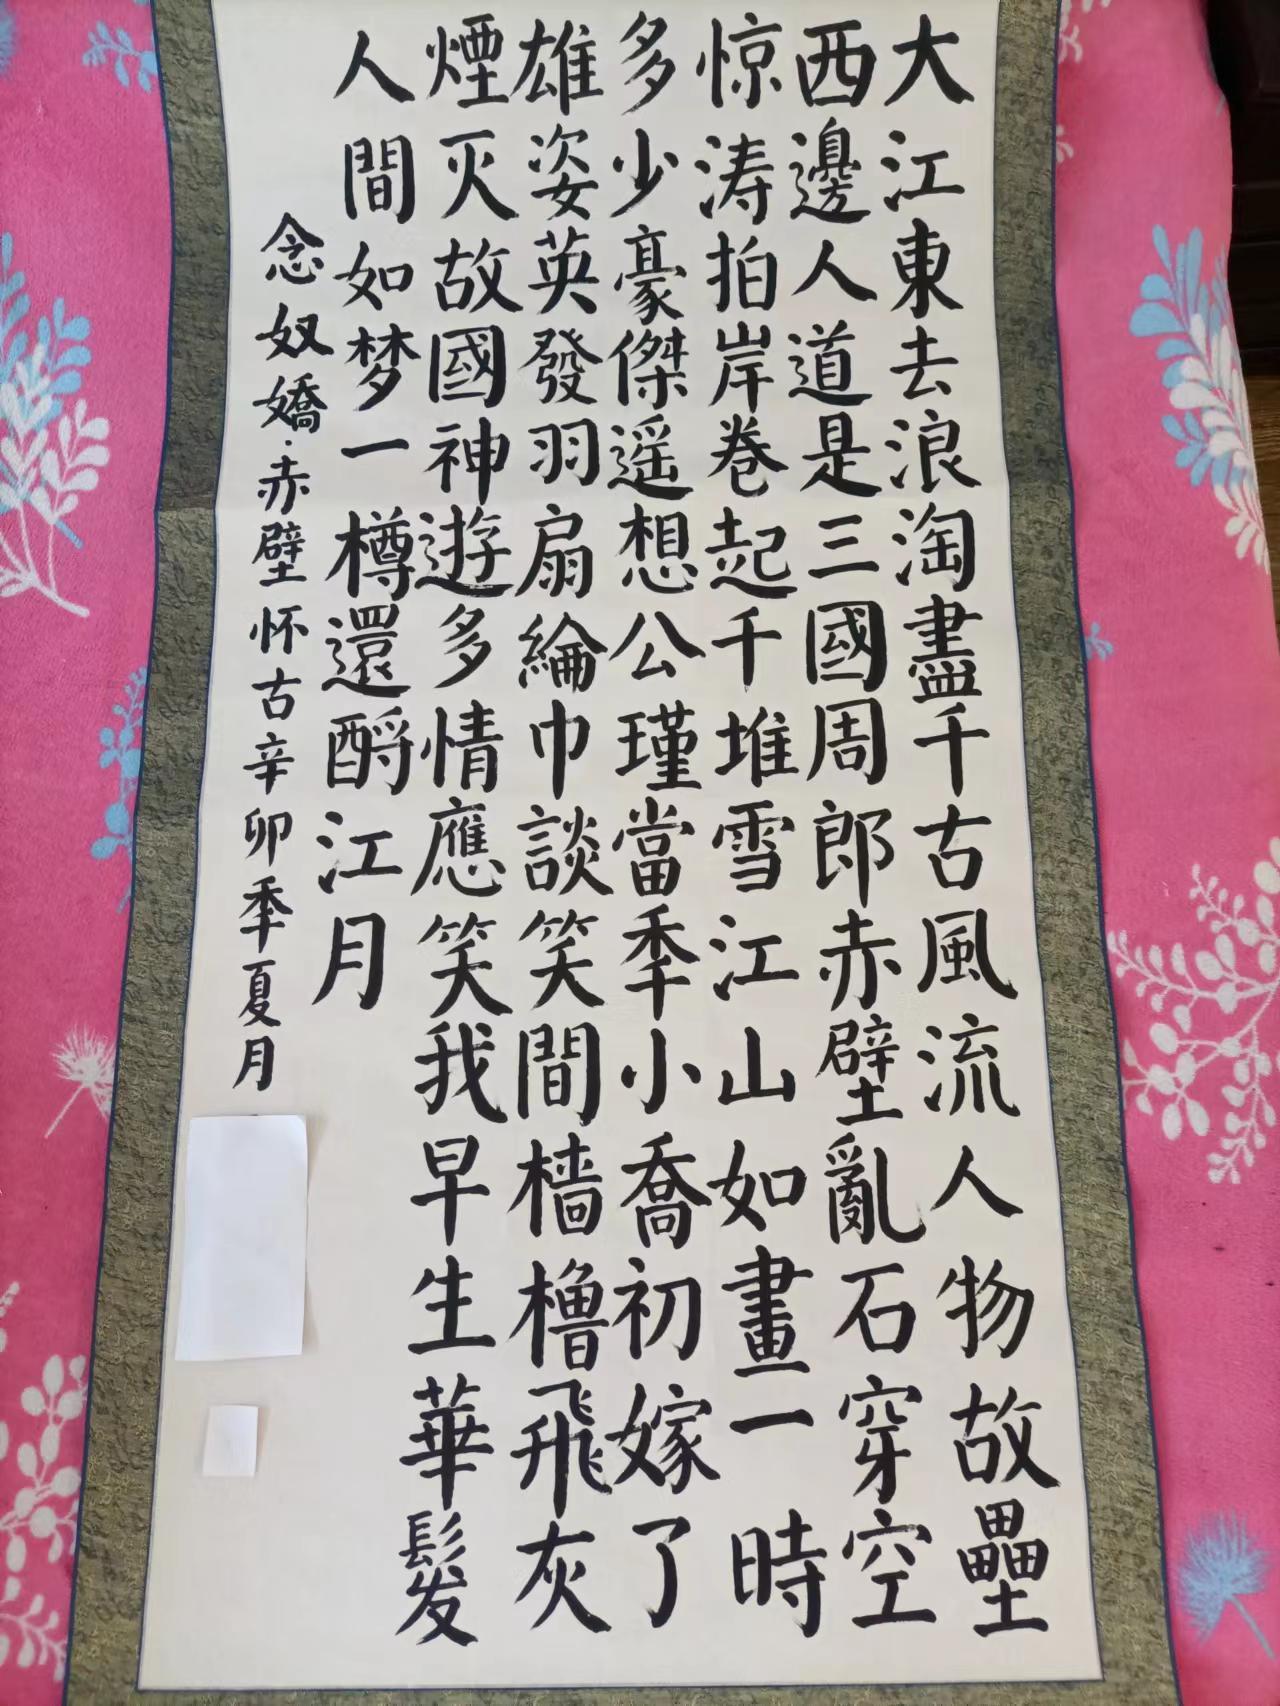 大江東去浪淘盡千古風流人物故壘
西邊人道是三國周郎赤壁亂石穿空
惊涛拍岸卷起千堆雪江山如畫一時
多少豪傑遥想公瑾當秊小喬初嫁了
雄姿英發羽扇綸巾談笑間檣櫓飛灰
煙灭故國神遊多情應笑我早生華髮
人間如梦一樽還酹江月
念奴嬌·赤壁怀古辛卯秊夏月